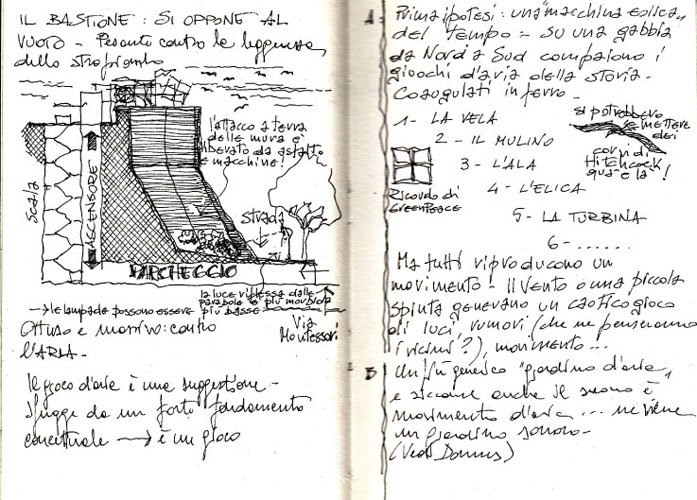 IL BASTIONE: SI OPPONE AL
VUOTO - Pesante contro la leggerezza
dello strapiombo
l'attacco a terra
delle mura è
liberato da asfalto
e macchine!
Scala
ASCENSORE
strada
PARCHEGGIO
la luce riflessa dalle
parabole è più morbida
→ le lampade possono essere più basse
Via
Montessori
Ottuso e massivo: contro
l'ARIA -
Il gioco d'aria è una suggestione -
Sfugge da un forte fondamento
concettuale → è un gioco
Prima ipotesi: una "macchina eolica"
del tempo = su una gabbia
da Nord a Sud compaiono i
giochi d'aria della storia -
Coagulati in ferro -
1- LA VELA
2- IL MULINO
3- L'ALA
4- L'ELICA
5- LA TURBINA
6- ......
si potrebbero
mettere
dei
corvi di
Hitchcock
qua e là!
Ricordo di
GREENPEACE
Ma tutti riproducono un
movimento! Il Vento o una piccola
spinta generano un caotico gioco
di luci, rumori (che ne penseranno
i vicini?), movimento...
Un più generico "giardino d'aria"
e siccome anche il suono è
movimento d'aria... ne viene
un giardino sonoro -
(Vedi Domus)